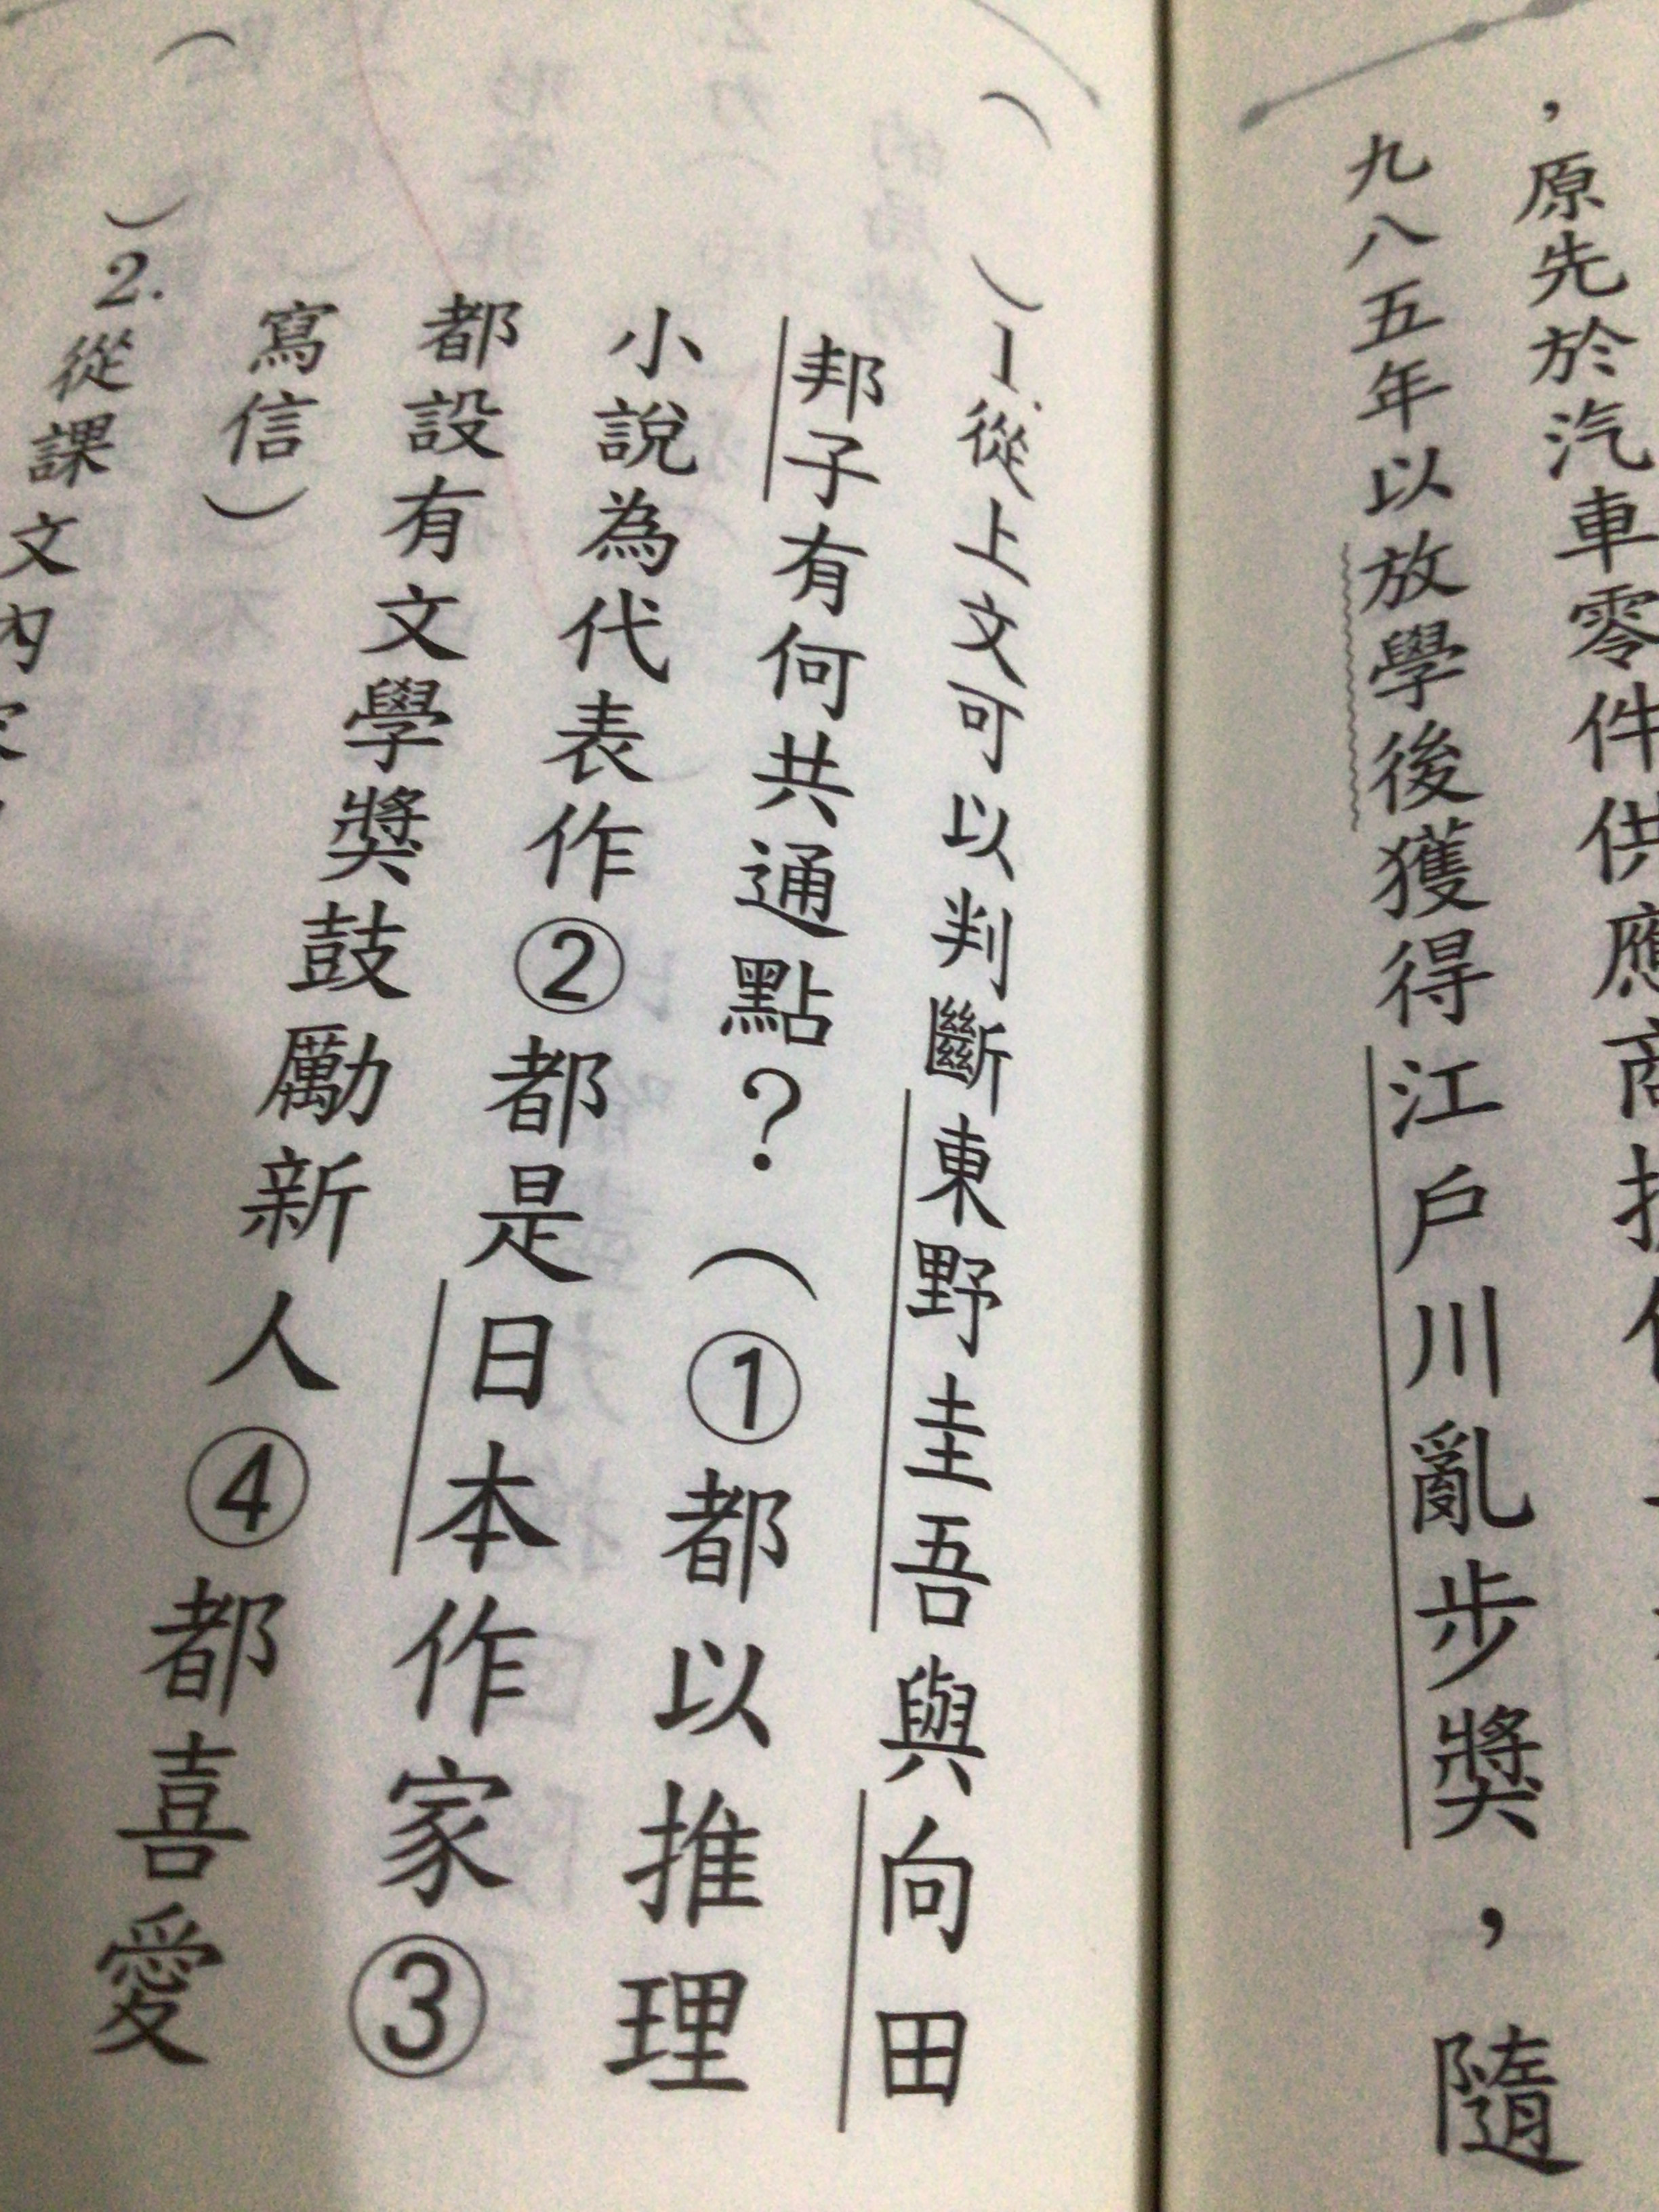 ，原先於汽車零件供應商擔任
九八五年以放學後獲得江戶川亂步獎，隨
（　）1.從上文可以判斷東野圭吾與向田
邦子有何共通點？（①都以推理
小說為代表作②都是日本作家③
都設有文學獎鼓勵新人④都喜愛
寫信）
（　）2.從課文內